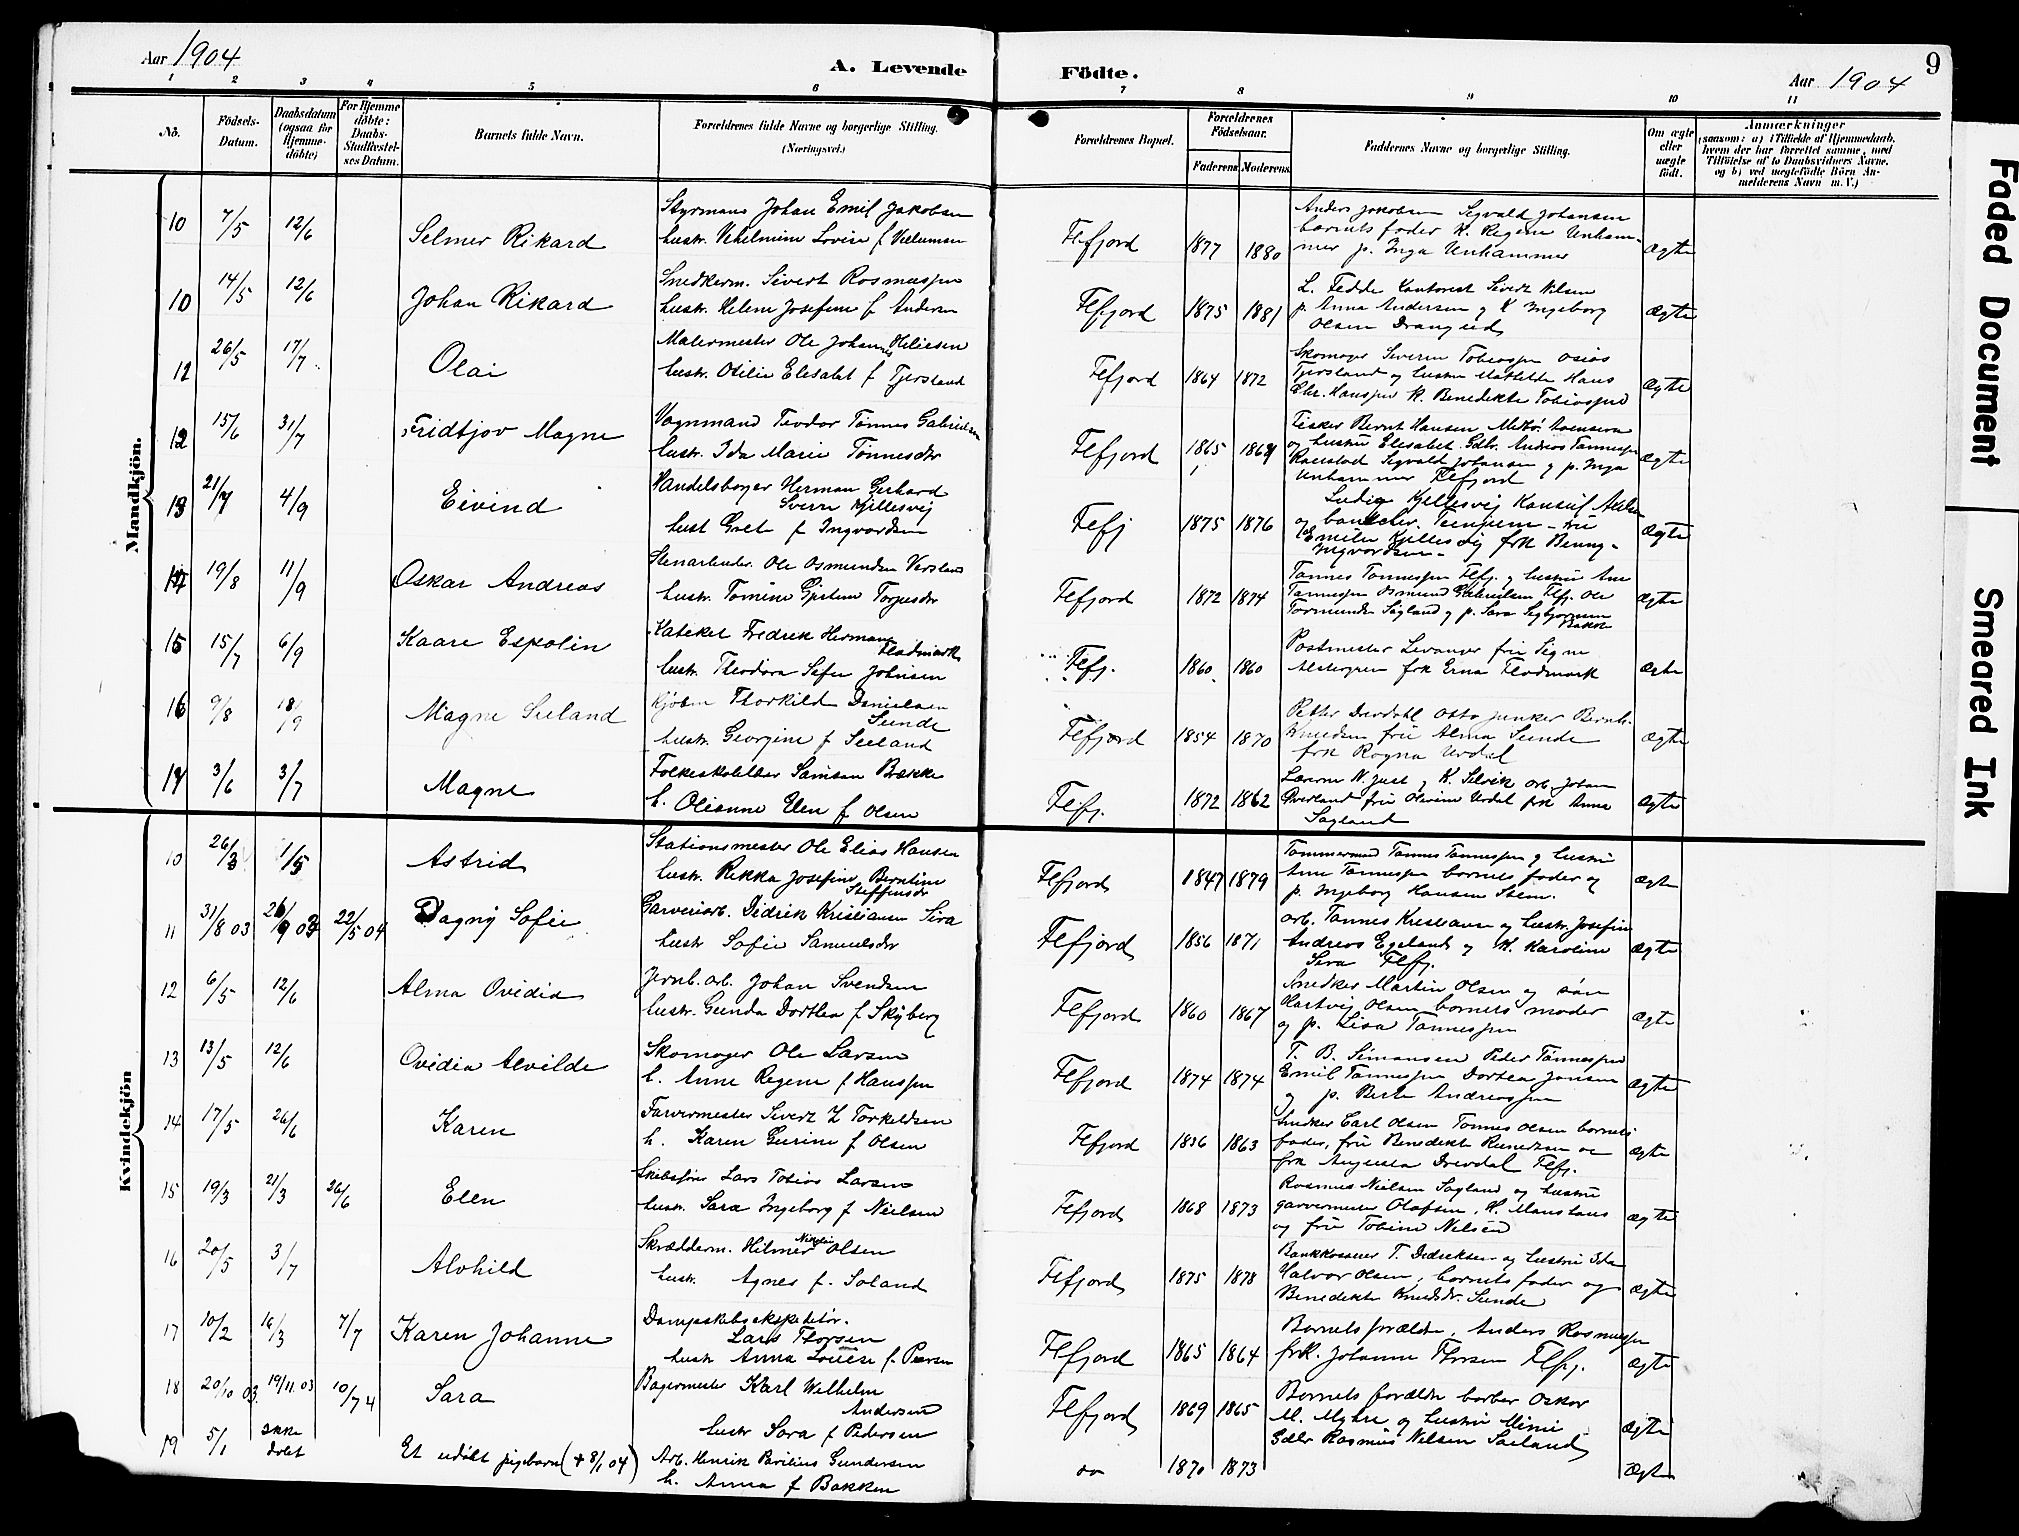 Aar 1904
A. Levende Födte.
Aar 1904
9
1 2 3 4 5 6 7 8 9 10 11
No.
Födsels-Datum.
Daabsdatum (ogsaa for Hjemme-döbte)
For Hjemme döbte: Daabs-Stadfæstel-ses Datum.
Barnets fulde Navn.
Forældrenes fulde Navne og borgerlige Stilling.
(Næringsvei.)
Forældrenes Bopæl.
Forældrenes Födselsaar.
Faderens Moderens
Faddernes Navne og borgerlige Stilling.
Om ægte eller uægte födt.
Anmærkninger
(saasom: a) i Tilfælde af Hjemmedaab,
hvem der har forrettet samme, med
Tilföielse af to Daabsvidners Navne.
og b) ved uægtefödte Börn An-
melderens Navn m. V.)
Mandkjön.
10 7/5 12/6 Selmer Rikard
Styrmand Johan Emil Jakobsen
hustr. Vilhelmine Lovise f
Flefjord 1877 1880
Anders Jakobsen Sigvald Johansen
barnets fader K. Regine Unham-
mer p. Inga Unhammer
Ægte
10 14/5 12/6 Johan Rikard
Snedkerm. Sivert Rasmussen
hustr. Helene Josefine f Andersen
Flefjord 1875 1881
L. Fedde Kantorist Sivert Nilsen
p. Anna Andersen g K Ingeborg
Olsen Drangeid
Ægte
12 26/5 17/7 Olai
Malermester Ole Johannes Heliesen
hustr. Otilie Elisabet f Tjorsland
Flefjord 1864 1872
Skomager Severin Tobiassen Osias
Tjorsland og hustru Mathilde Hans
Chr. Hanssen K. Benedikte Tobiassen
Ægte
12 15/6 31/7 Fridtjov Magne
Vognmand Teodor Tønnes Gabrielsen
hustr. Ida Marie Tønnesdtr
Flefjord 1865 1869
Fisker Bernt Hansen
og hustru Elisabet Gdbr. Andreas Tønnessen
Sigvald Johansen g p. Inga
Unhammer Flefjord
Ægte
13 21/7 4/9 Eivind
Handelsborger Herman Gerhard
Sverre Kjellesvig
hust Gret f Ingvardsen
Flefj 1875 1876
Ludvig Kjellesvig Konsul
og fru
Emilie Kjellesvig frk Benny
Ingvardsen
Ægte
14 19/8 11/9 Oskar Andreas
Stenarbeider. Ole Osmundsen
hustr. Tomine Torjusdtr
Flefjord 1872 1874
Tønnes Tønnessen Flefj. g hustru Ane
Tønnessen Osmund Gabrielsen Flefj. Ole
Sagland g p. Sara
Ægte
15 15/7 6/9 Kaare Espolin
Kateket Fredrik Herman
Flodmark
hustr. Theodora Johnsen
Flefj. 1860 1860
Postmester Levanger fru Signe
frk Erna Flodmark
Ægte
16 9/8 18/9 Magne Seeland
Kjøbm Thorkild Danielsen
Sunde
hustr. Georgine f Seeland
Flefjord 1854 1870
Petter Drevdahl Otto Junker Bernh.
Knudsen fru Alma Sunde
frk Ragna Urdal
Ægte
17 3/6 3/7 Magne
Folkeskolelærer Samson Bække
h. Olianne Elen f Olsen
Flefj. 1872 1862
fru Olivine Urdal frk Anna
Sagland
Ægte
Kvindekjön
10 26/3 1/5 Astrid
Stationsmester Ole Elias Hansen
hustr. Rikka Josefine Berntine
Steffensdtr
Flefjord 1847 1879
Tømmermand Tønnes Tønnessen g hustru
Ane Tønnessen barnets fader og
p. Ingeborg Hansen
Ægte
11 31/8 03 22/5 04 Dagny Sofie
Garveriarb. Didrik Kristiansen Sira
hustr Sofie Samuelsdtr
Flefjord 1856 1871
arb. Tønnes Kristiansen g hustr. Josefine
Andreas Egeland g K. Karoline
Sira Flefj.
Ægte
12 6/5 12/6 Alma Ovidia
Jernb. arb. Johan Svendsen
hustr. Gunda Dorthea f Skyberg
Flefjord 1860 1867
Snedker Martin Olsen og søn
Hartvig Olsen barnets moder
og p. Lisa Tønnessen
Ægte
13 13/5 12/6 Ovidia Alvilde
Skomager Ole Larsen
h. Anne Regine f Hanssen
Flefjord 1874 1874
T. B. Simonsen Peder Tønnessen
Emil Tønnessen Dorthea Jensen
og p. Berte Andreassen
Ægte
14 17/5 26/6 Karen
Farvermester Sivert Z Torkeldsen
h. Karen Gurine f Olsen
Flefjord 1856 1863
Snedker Carl Olsen Tønnes Olsen barnets
fader, fru Benedikte
frk Augusta Drevdal Flefj.
Ægte
15 19/3 21/3 26/6 Elen
Skibsfører Lars Tobias Larsen
hustr. Sara Ingeborg f Nielsen
Flefjord 1868 1873
Rasmus Nielsen Sagland og hustru
garvermester Olafsen, H. Monshaus
og fru Tobine Nelsen
Ægte
16 20/5 3/7 Alvhild
Skrædderm. Hilmer Nikolai Olsen
hustr. Agnes f. Soland
Flefjord 1875 1878
Bankkasserer T. Didriksen og hustru Ida
Halvor Olsen, barnets fader og
Benedikte Knudsdr. Sunde
Ægte
17 10/2 16/3 7/7 Karen Johanne
Dampskibsekspeditør.
Lars Thorsen
hustr Anna Louise f. Peersen
Flefjord 1865 1864
Barnets forældre, Anders Rasmussen
frk. Johanne Thorsen Flefj.
Ægte
18 20/10 03. 19/11 03 10/7 4 Sara
Bagermester Karl Wilhelm
Andersen
hustr Sara f Pedersen
Flefjord 1869 1865
Barnets forældre barber Oskar
M. Myhre og hustru Mimi
Gdbr Rasmus Nilsen Seland
Ægte
19 5/1 ikke døbt Et udøbt pigebarn (+ 8/1 04)
Arb. Henrik Gundersen
h. Anna f Bakken
do 1870 1873
Ægte
Faded Document
Smeared Ink